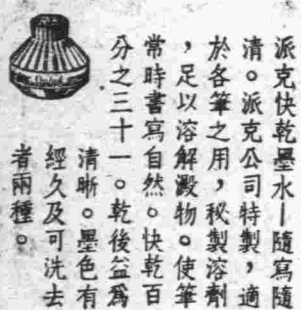 派克快乾墨水—隨寫隨
清。派克公司特製，適
於各筆之用，秘製溶劑
，足以溶解澱物。使筆
常時書寫自然。快乾百
分之三十一。乾後益爲
清晰。墨色有
經久及可洗去
者兩種。
Quink